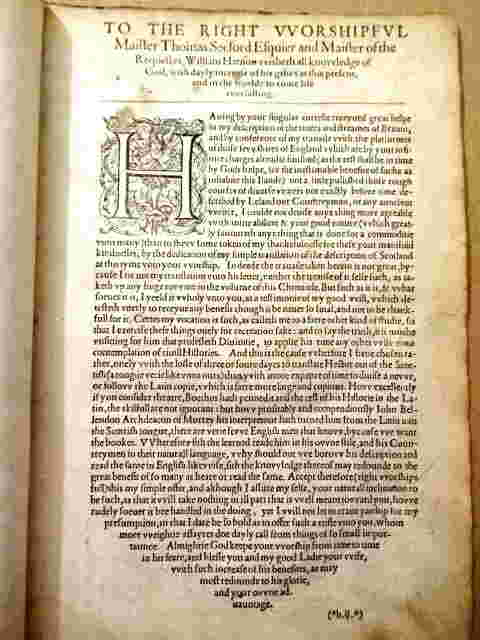 TO THE RIGHT VVORSHIPFVL
Maister Thomas Secford Esquier and Maister of the
Requestes, William Harison wisheth all knowledge of
God, with dayly increase of his giftes at this present,
and in the worlde to come life
euerlasting.
HAuing by your singular curtesie receyued great helpe
in my description of the riuers and streames of Britain,
and by conference of my trauaile vvith the platformes
of those fevv shires of England vvhich are by your infi-
nite charges alreadie finished, as the rest shall be in time
by Gods helpe, for the inestimable benefite of suche as
inhabite this Ilande; not a little polished those rough
courses of diuerse vvaters not exactly before time de-
scribed by Leland our Countreyman, or any auncient
vvriter, I could not deuise any thing more agreable
vvith mine abilitie & your good nature (vvhich great-
ly fauoureth any thing that is done for a commoditie
vnto many) than to shevv some token of my thankefulnesse for these your manifold
kindnesses, by the dedication of my simple translation of the description of Scotland
at this tyme vnto your vvorship. In deede the trauaile taken herein is not great, by-
cause I tie not my translation vnto his letter, neither the treatise it selfe such, as ta-
keth vp any huge rovvme in the volume of this Chronicle. But such as it is, & vvhat
soeuer it is, I yeeld it vvholy vnto you, as a testimonie of my good vvill, vvhich de-
testeth vvorlly to receyue any benefit though it be neuer so smal, and not to be thank-
full for it. Certes my vocation is such, as calleth me to a farre other kind of studie, so
that I exercise these things onely for recreation sake: and to say the truth, it is much
vnfitting for him that professeth Diuinitie, to applie his time any other vvise vnto
contemplation of ciuill Histories. And this is the cause vvherfore I haue chosen ra-
ther, onely vvith the losse of three or foure dayes to translate Hector out of the Scot-
tish (a tongue verie like vnto ours) than vvith more expence of time to diuise a nevve,
or follovve the Latin copie, vvhich is farre more large and copious. Hovv excellently
if you consider the arte, Boethus hath penned it and the rest of his Historie in the La-
tin, the skilfull are not ignorant: but hovv profitably and compendiously Iohn Bel-
lendon Archdeacon of Murrey his interpretour hath turned him from the Latin into
the Scottish tongue, there are verie fevve English men that knovve, bycause vve want
the bookes. VVherefore sith the learned reade him in his ovvne stile, and his Coun-
treymen in their naturall language, vvhy should not vve borovv his description and
read the same in English likevvise, sith the knovvledge thereof may redounde to the
great benefit of so many as heare or read the same. Accept therefore (right vvorship-
full) this my simple offer, and although I assure my selfe, your naturall inclination to
be such, as that it vvill take nothing in ill part that is vvell meant tovvard you, hovve
rudely soeuer it bee handled in the doing, yet I vvill not let to craue pardon for my
presumption, in that I dare be so bold as to offer such a trifle vnto you, vvhom
more vveightie affayres doe dayly call from things of so small impor-
taunce. Almightie God keepe your vvorship from time to time
in his feare, and blesse you and my good Ladie your vvife,
vvith such increase of his benefites, as may
most redounde to his glorie,
and your ovvne ad-
uauntage.
(*b.ij.*)